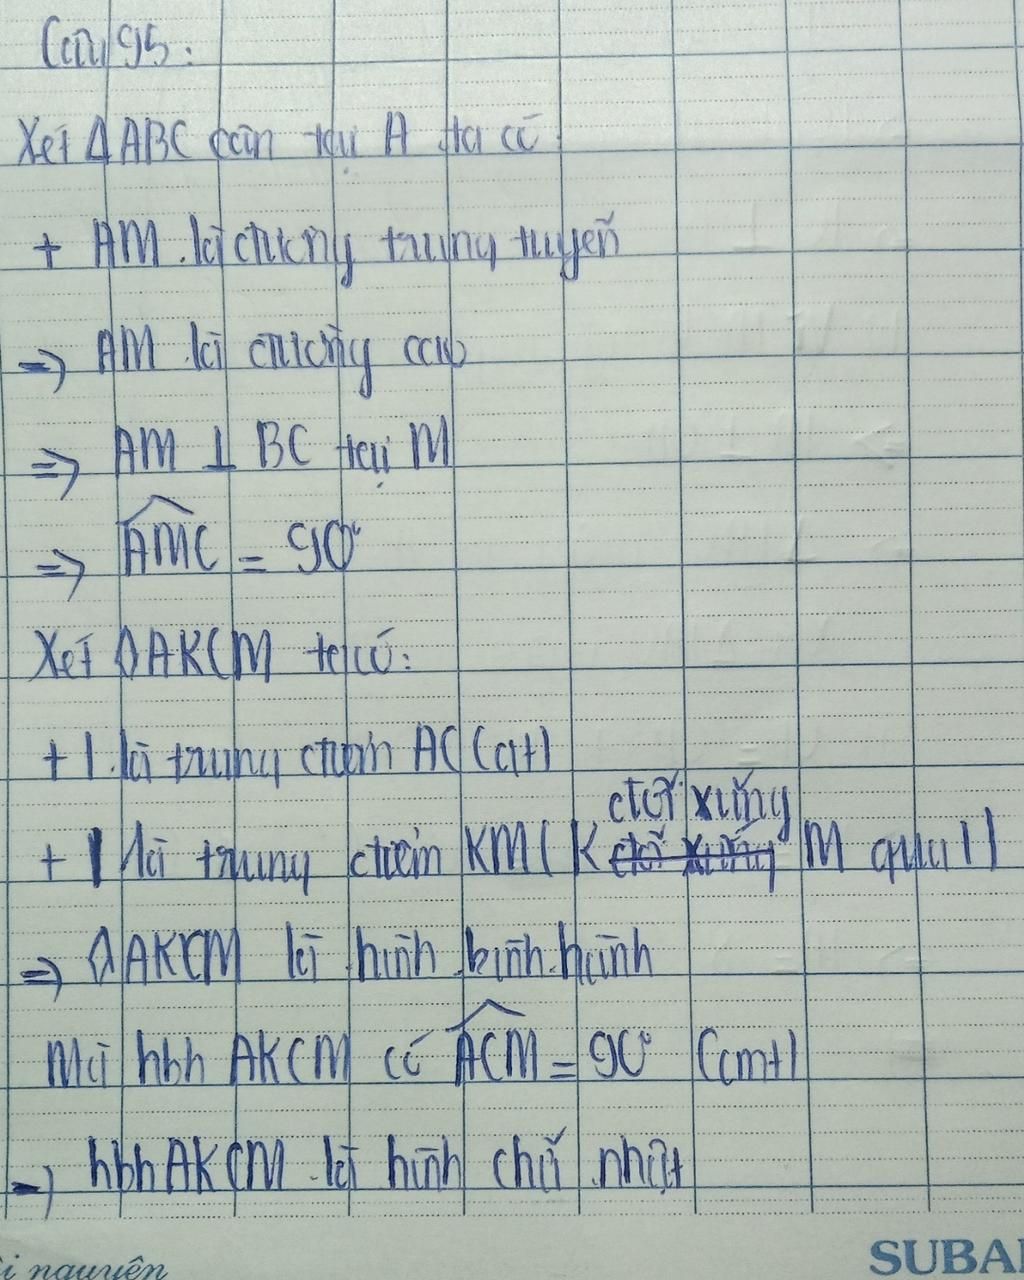 Câu 95:
Xét ΔABC cân tại A ta có
+ AM là đường trung tuyến
=> AM là đường cao
=> AM ⊥ BC tại M
=> \widehat{AMC} = 90°
Xét ◊AKCM ta có:
+ I là trung điểm AC (gt)
+ I là trung điểm KM ( K đối xứng M qua I)
=> ◊AKCM là hình bình hành
Mà hbh AKCM có \widehat{ACM} = 90° (cmt)
=> hbh AKCM là hình chữ nhật
SUBA